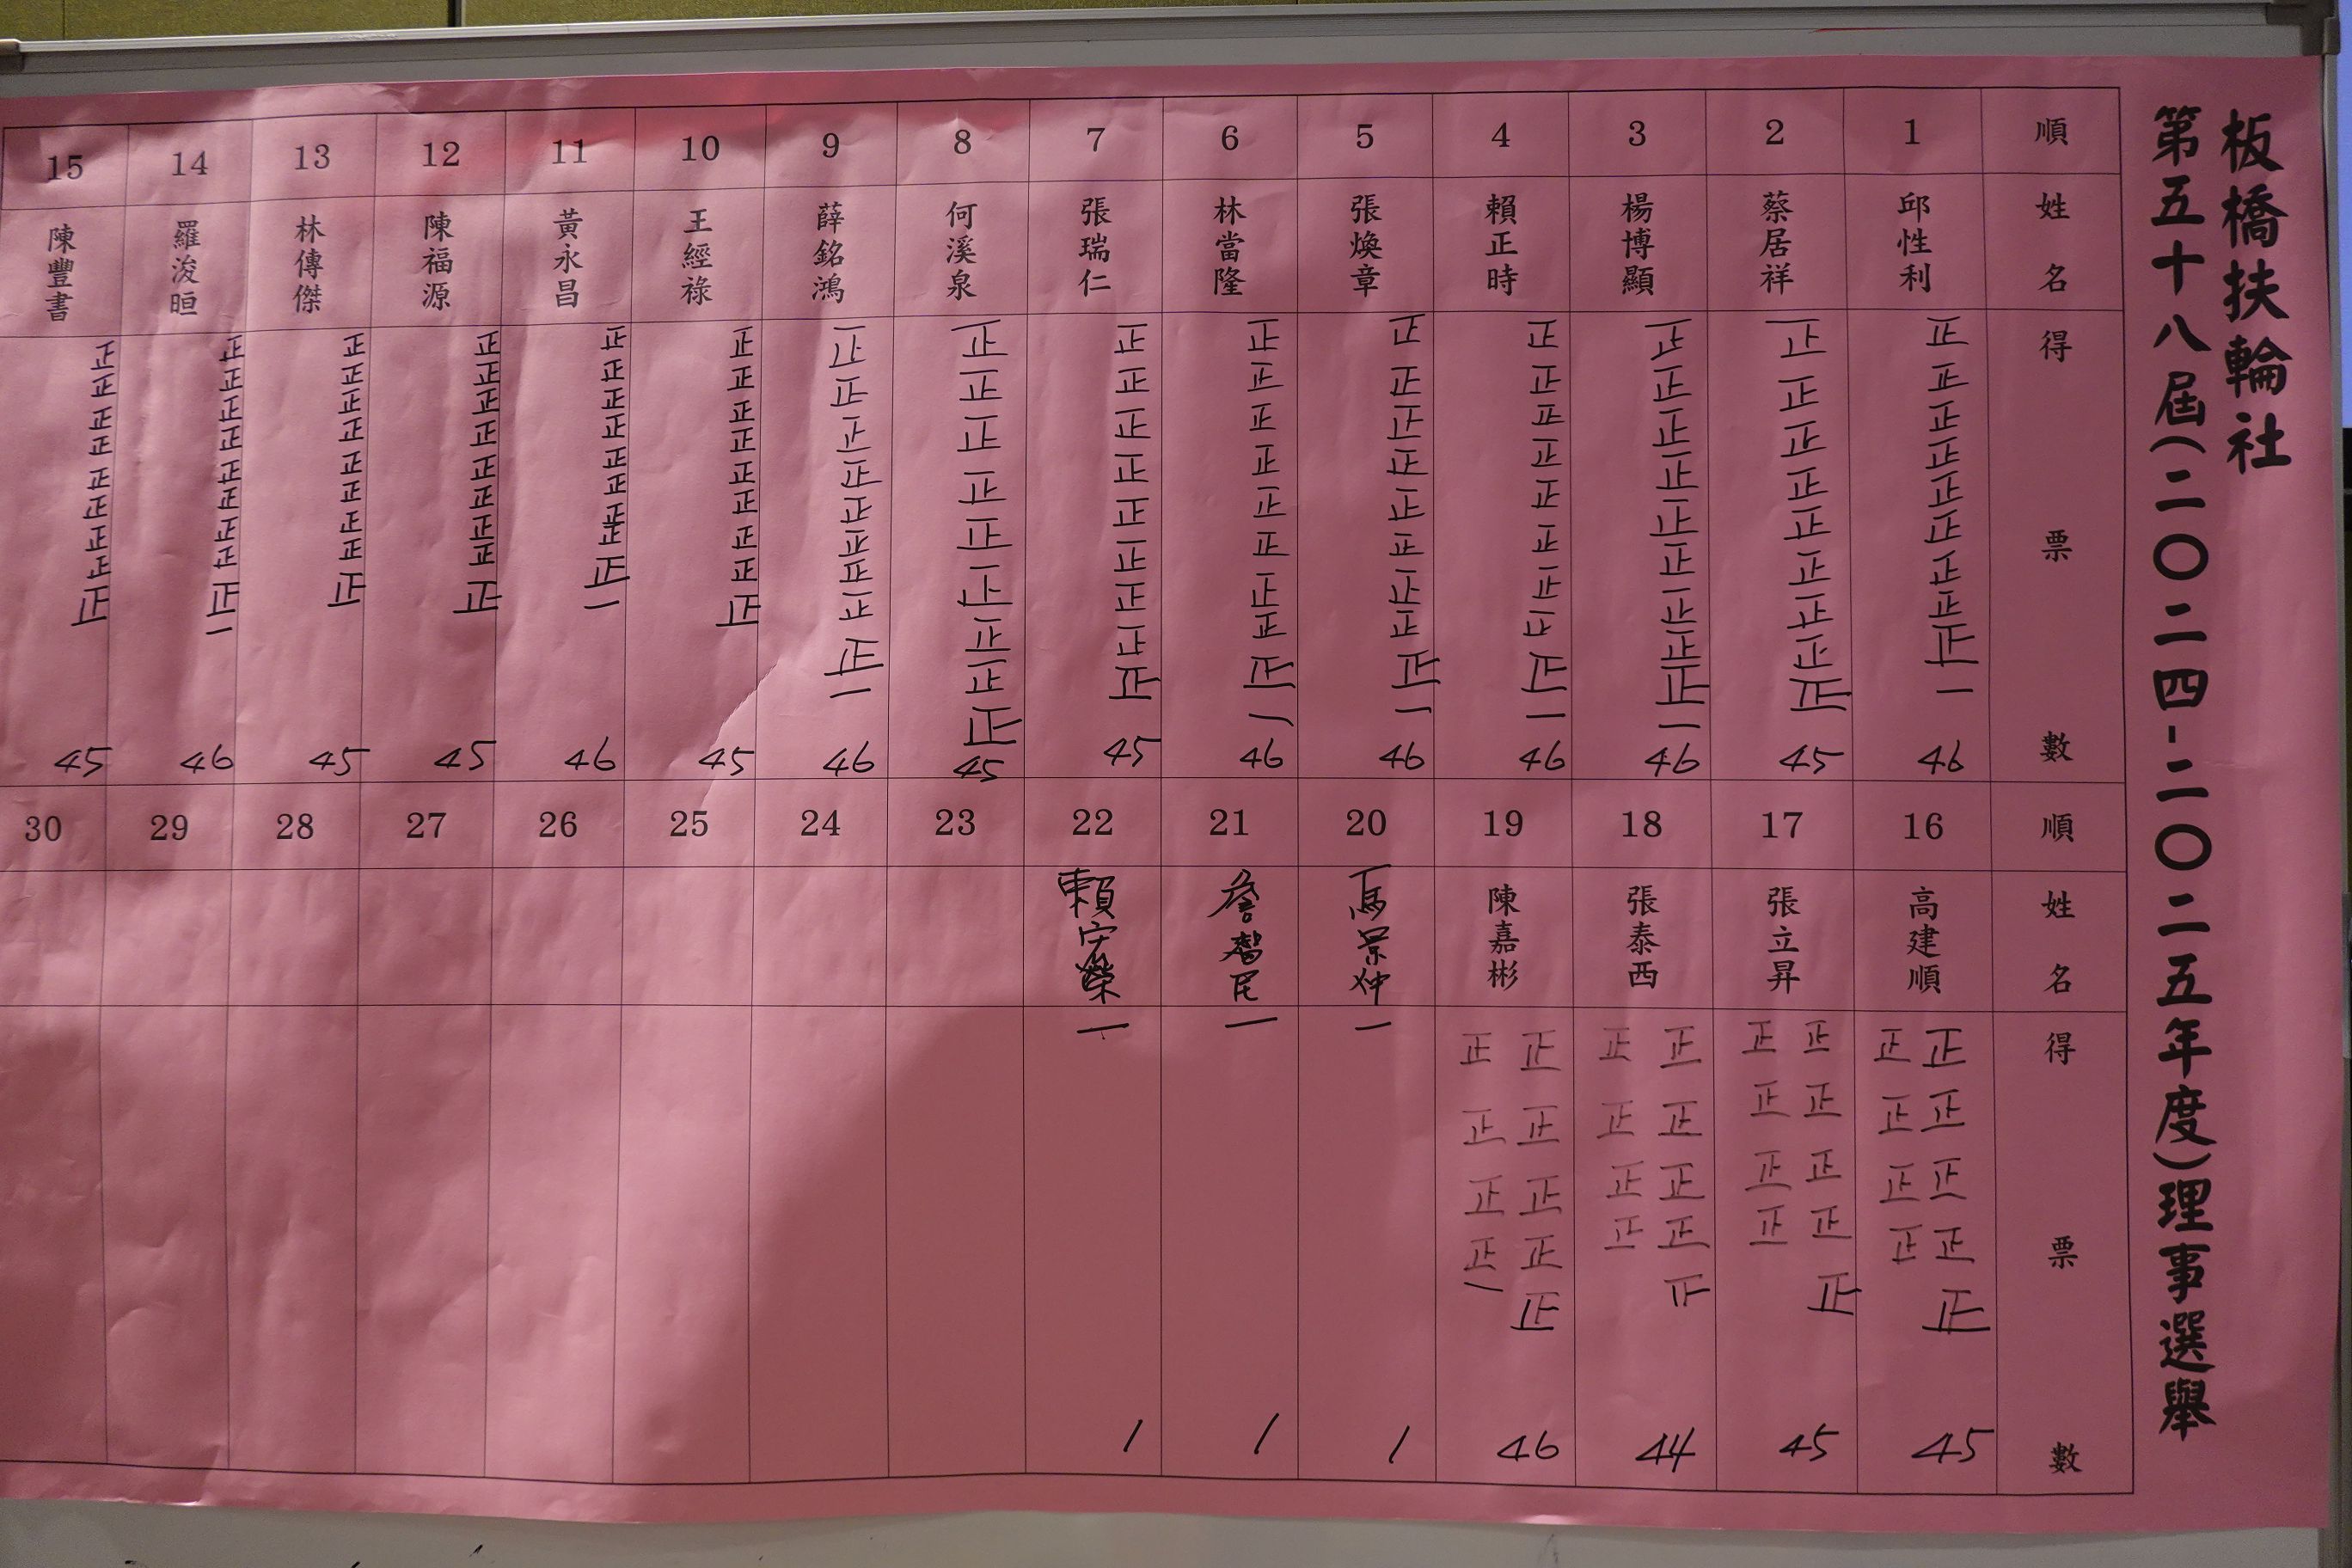 板橋扶輪社
第五十八屆(二〇二四-二〇二五年度)理事選舉
順 姓名 得票數
1 邱性利 正正正正正正正正正一 46
2 蔡居祥 正正正正正正正正正 45
3 楊博顯 正正正正正正正正正一 46
4 賴正時 正正正正正正正正正一 46
5 張煥章 正正正正正正正正正一 46
6 林當隆 正正正正正正正正正一 46
7 張瑞仁 正正正正正正正正正 45
8 何溪泉 正正正正正正正正正 45
9 薛銘鴻 正正正正正正正正正一 46
10 王經祿 正正正正正正正正正 45
11 黃永昌 正正正正正正正正正一 46
12 陳福源 正正正正正正正正正 45
13 林傳傑 正正正正正正正正正 45
14 羅浚晅 正正正正正正正正正一 46
15 陳豐書 正正正正正正正正正 45
順 姓名 得票數
16 高建順 正正正正正正正正正 45
17 張立昇 正正正正正正正正正 45
18 張泰西 正正正正正正正正 44
19 陳嘉彬 正正正正正正正正正一 46
20 馮景仲 一 1
21 詹智民 一 1
22 賴宏榮 一 1
23
24
25
26
27
28
29
30